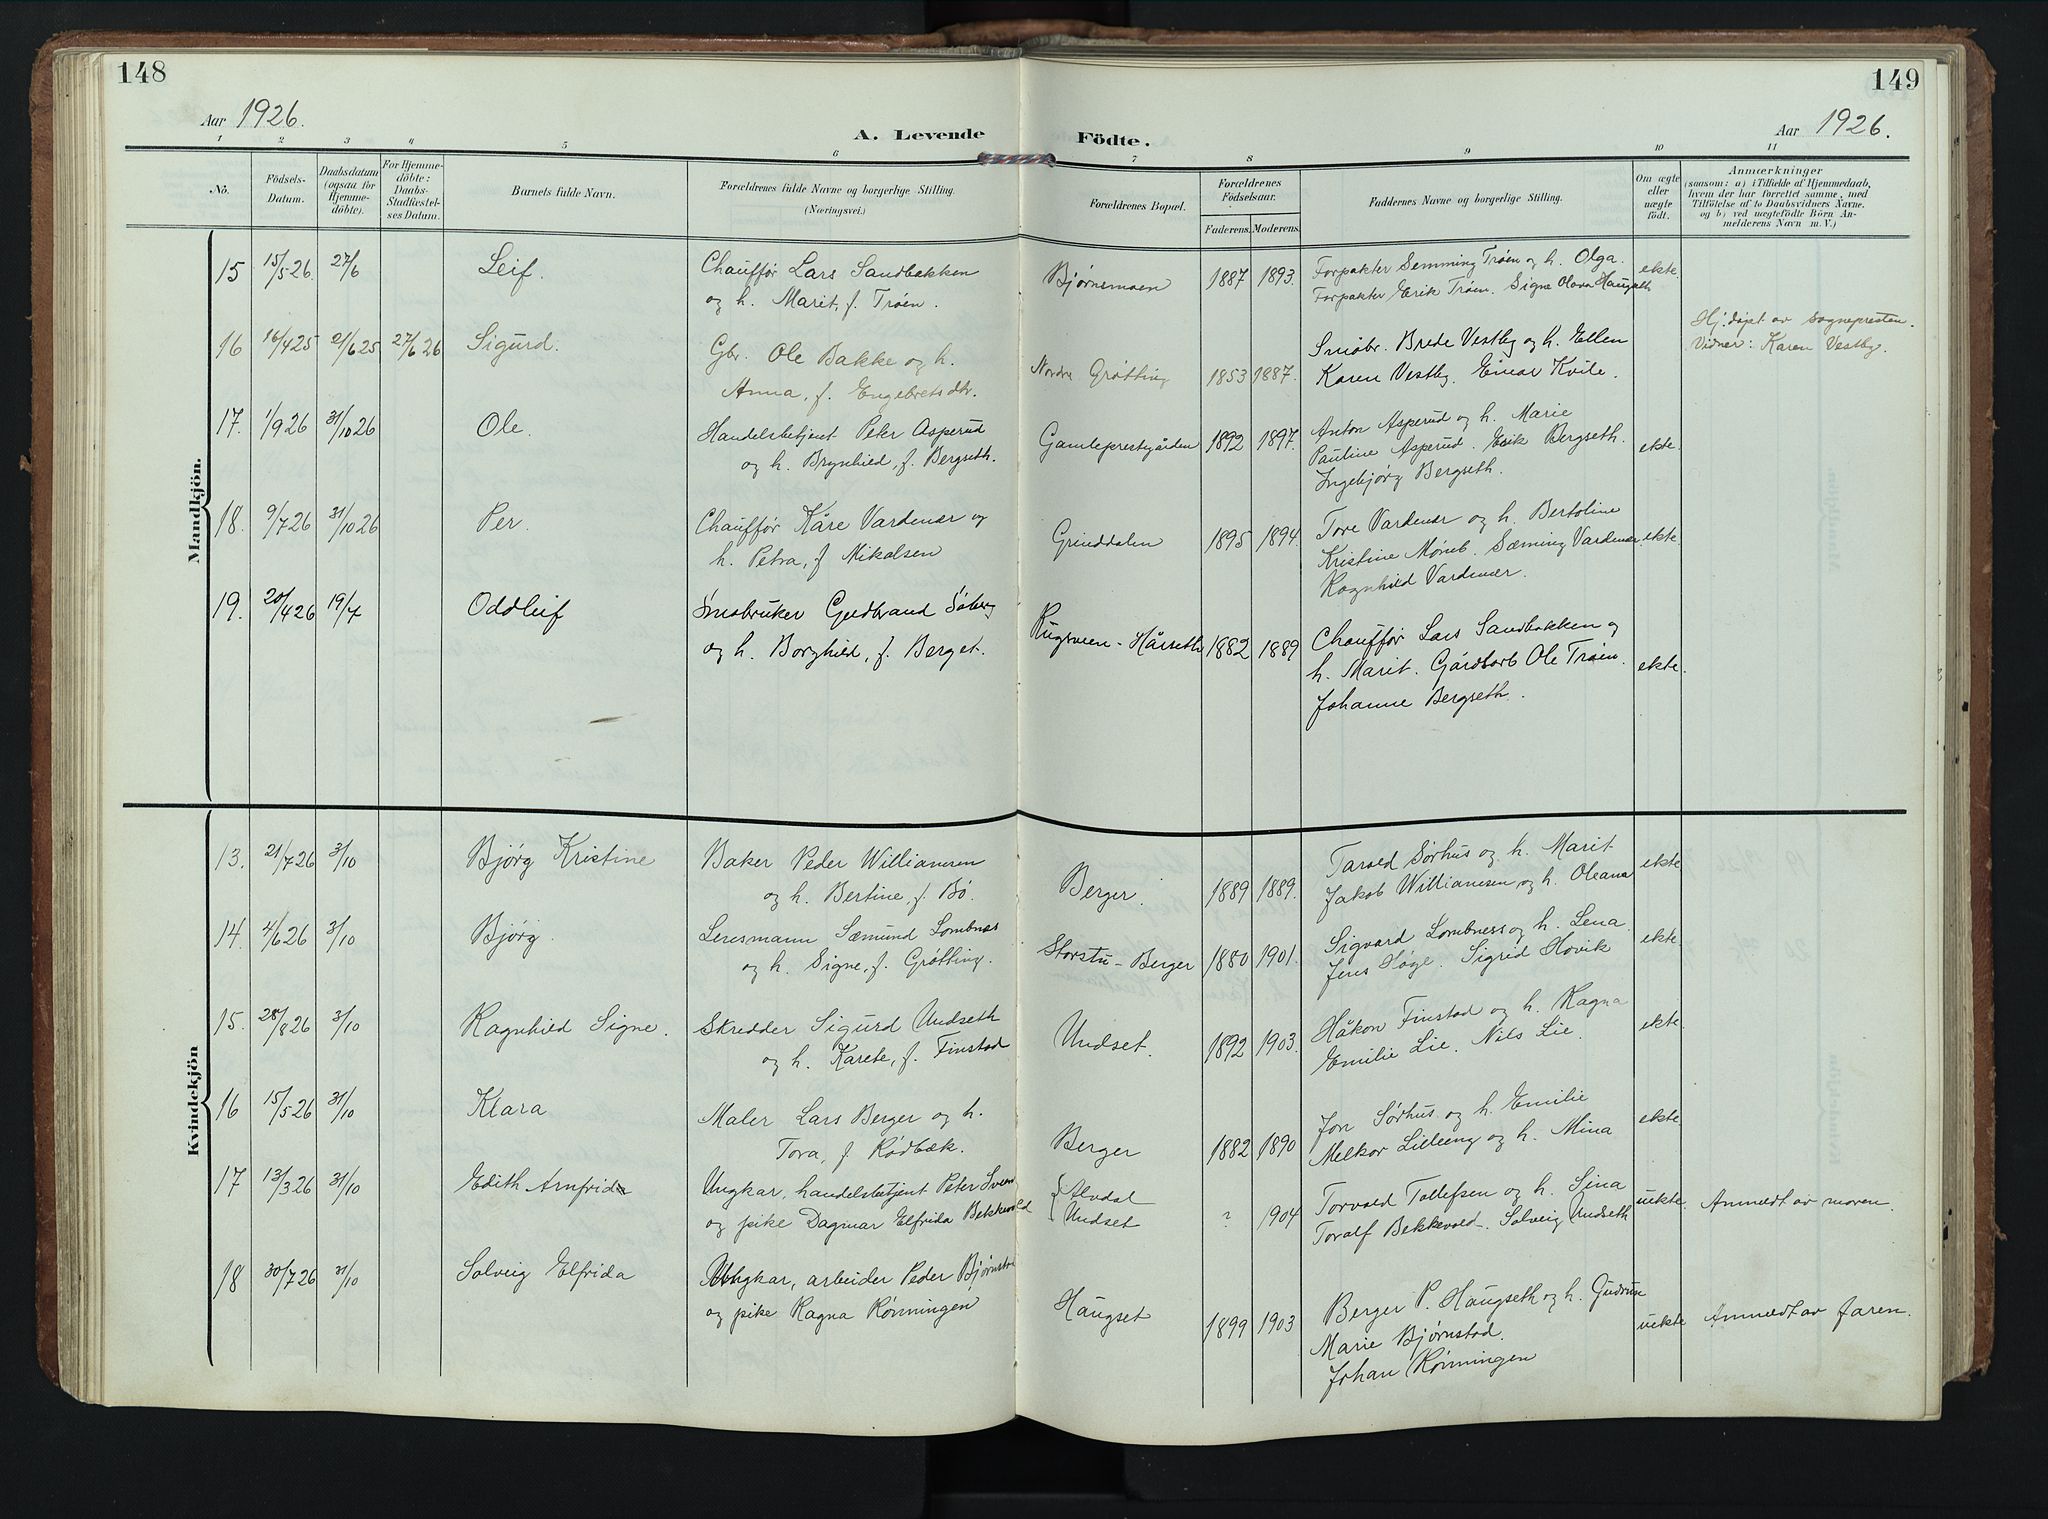 148
149
Aar 1926.
A. Levende Födte.
Aar 1926.
1 2 3 4 5 6 7 8 9 10 11
No.
Födsels-
Datum.
Daabsdatum
(ogsaa for
Hjemme-
döbte).
For Hjemme-
döbte:
Daabs-
Stadfæstel-
ses Datum.
Barnets fulde Navn.
Forældrenes fulde Navne og borgerlige Stilling.
(Næringsvei.)
Forældrenes Bopæl.
Forældrenes
Födselsaar.
Faderens. Moderens.
Faddernes Navne og borgerlige Stilling.
Om ægte
eller
uægte
födt.
Anmærkninger
(saasom: a) i Tilfælde af Hjemmedaab,
hvem der har forrettet samme, med
Tilföielse af to Daabsvidners Navne.
og b) ved uægtefödte Börn An-
melderens Navn m. V.)
Mandkjön.
15 15/5 26. 27/6 Leif.
Chauffør Lars Sandbakken
og h. Marit, f. Trøen.
Bjørnemoen 1887 1893.
Forpakter Semming Trøen og h. Olga.
Forpakter Erik Trøen. Signe Olava Haugseth
ekte.
16 16/4 25 21/6 25 27/6 26 Sigurd.
Gbr. Ole Bakke og h.
Anna, f. Engebretsdtr.
Nordre Grøtting 1853 1887.
Småbr. Brede Vestby og h. Ellen
Karen Vestby. Einar Kvile.
Hj. døpt av Sognepresten.
Vidner: Karen Vestby.
17. 1/9 26 31/10 26 Ole.
Handelsbetjent Peter Asperud
og h. Brynhild, f. Bergseth.
Gamleprestgården 1892 1897.
Anton Asperud og h. Marie
Pauline Asperud. Erik Bergseth.
Ingebjørg Bergseth.
ekte.
18. 9/7 26 31/10 26 Per.
Chauffør Kåre Vardenær og
h. Petra, f. Mikalsen
Grinddalen 1895 1894.
Tore Vardenær og h. Bertoline
Kristine Sæming Vardenær.
Ragnhild Vardenær.
ekte.
19. 20/4 26 19/7 Oddleif
Småbruker Gudbrand Søberg
og h. Borghild, f. Berget.
Rugsveen - Hårseth 1882 1889
Chauffør Lars Sandbakken og
h. Marit. Gårdbarb Ole Trøen.
Johanne Bergseth.
ekte.
Kvindekjön
13. 21/7 26 3/10 Bjørg Kristine
Baker Peder Williamsen
og h. Bertine, f. Bø.
Berger. 1889 1889.
Tarald Sørhus og h. Marit
Jakob Williamsen og h. Oleana
ekte
14. 4/6 26 3/10 Bjørg.
Lensmann Sæmund Lombnæs
og h. Signe, f. Grøtting.
Storstu - Berger 1880 1901.
Sigvard Lombness og h. Lena.
Jens Høge. Sigrid Hovik
ekte.
15. 28/8 26 3/10 Ragnhild Signe.
Skredder Sigurd Undseth
og h. Karete, f. Finstad
Undset. 1892 1903.
Håkon Finstad og h. Ragna
Emilie Lie. Nils Lie.
ekte.
16 15/5 26 31/10 Klara
Maler Lars Berger og h.
Tora, f. Rødbæk.
Berger 1882 1890
Jon Sørhus og h. Emilie
Melkor Lilleeng og h. Mina
ekte.
17 13/3 26 31/10 Edith Arnfrida
Ungkar, handelsbetjent Peter Svens
og pike Dagmar Elfrida Bekkevold
{ Alvdal
Undset ? 1904
Torvald Tollefsen og h. Sina
Toralf Bekkevold. Solveig Undseth
uekte. Anmeldt av moren.
18 30/7 26 31/10 Solveig Elfrida
Ungkar, arbeider Peder Bjørnstad
og pike Ragna Rønningen
Haugset 1899 1903
Berger P. Haugseth og h. Gudrun
Marie Bjørnstad.
Johan Rønningen
uekte Anmeldt av faren.